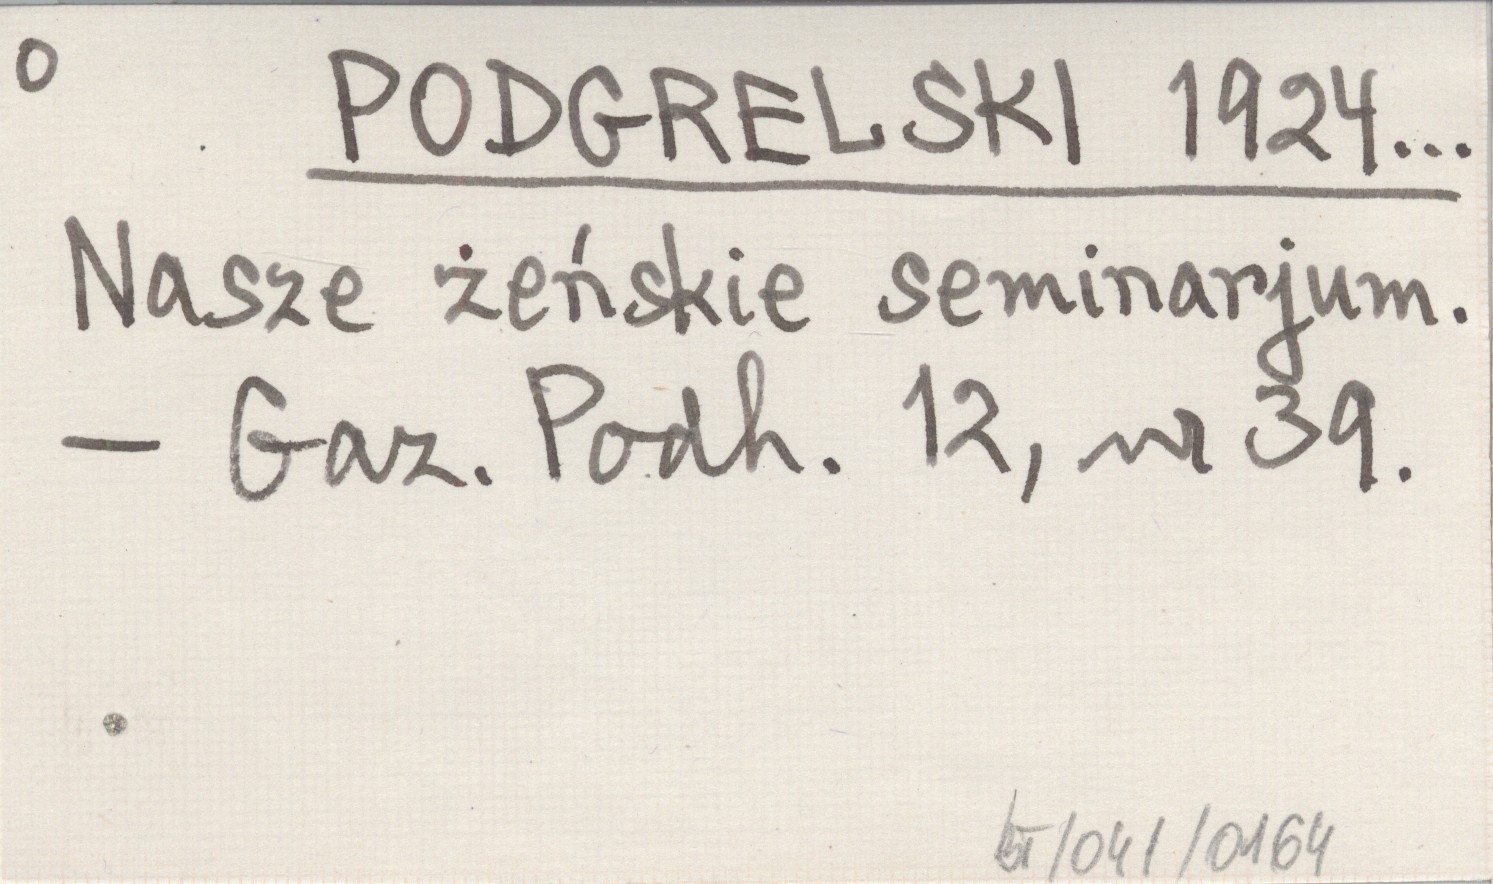 o
PODGRELSKI 1924...
Nasze żeńskie seminarjum.
— Gaz. Podh. 12, nr 39.
/041/0164